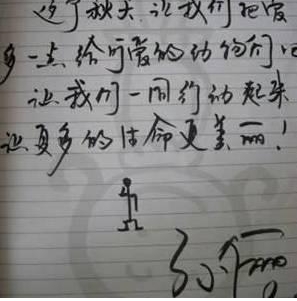 这个秋天,让我们把爱
多一点给可爱的动物们吧
让我们一同行动起来
让更多的生命更美丽!